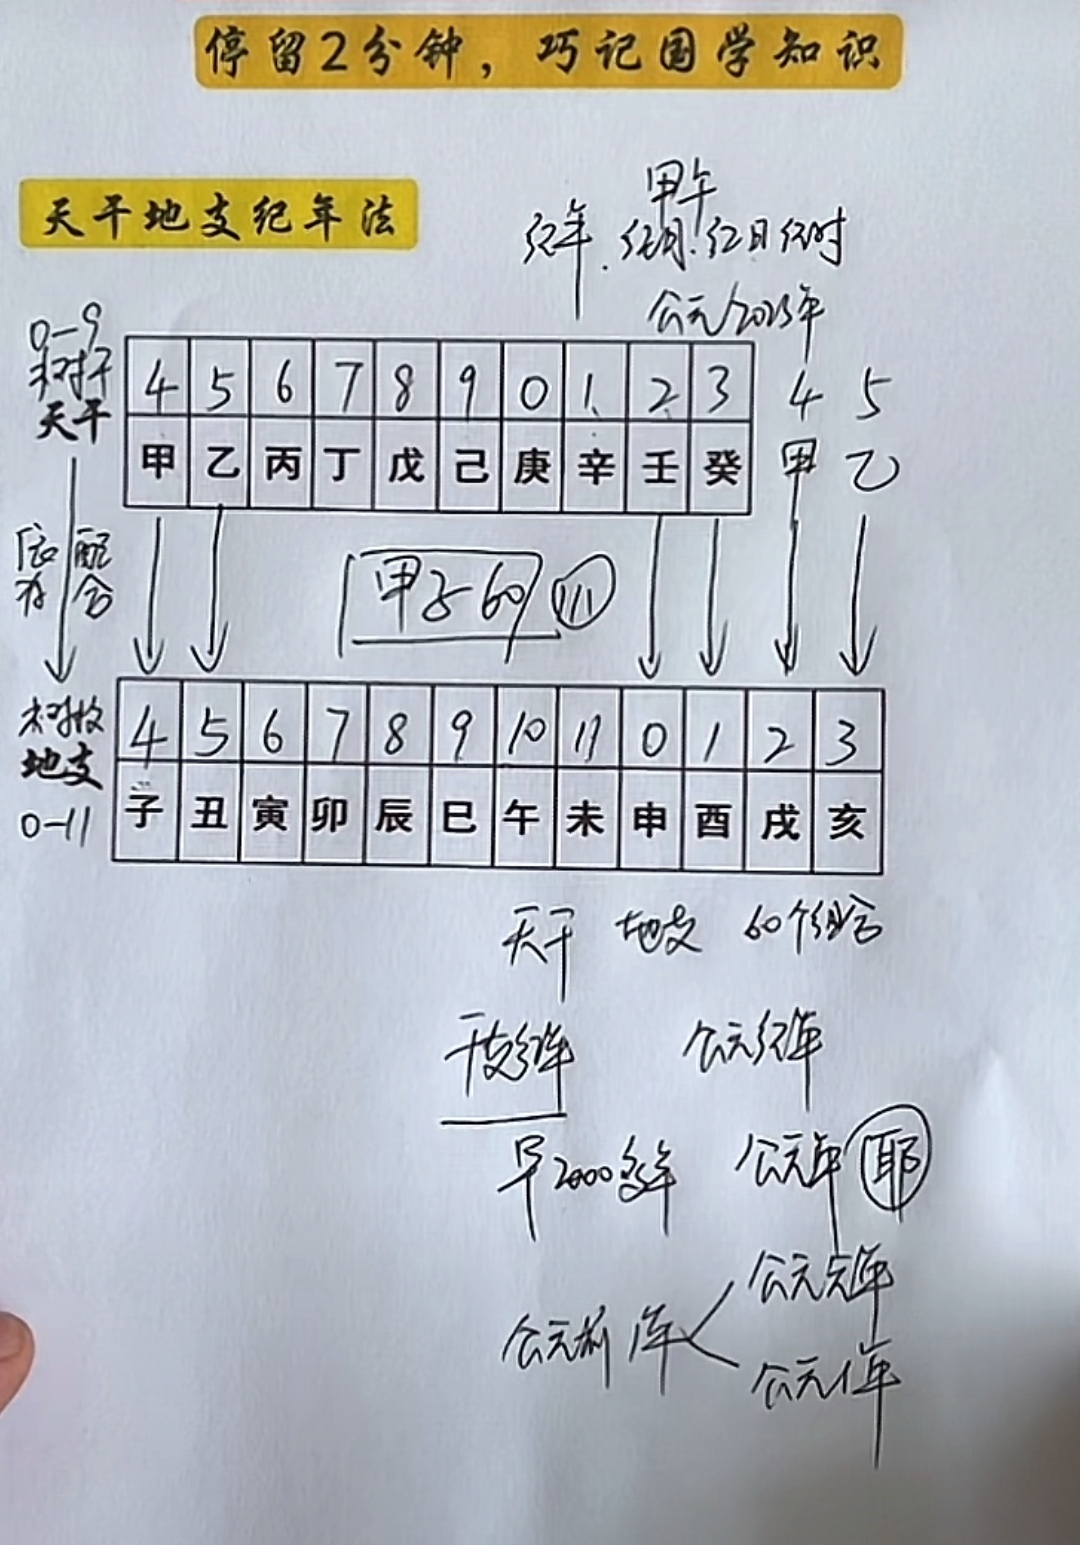 停留2分钟，巧记国学知识
甲午
天干地支纪年法
纪年.纪月.纪日纪时
公元/2025年
0-9
树干
天干
4 5 6 7 8 9 0 1 2 3 4 5
甲 乙 丙 丁 戊 己 庚 辛 壬 癸 甲 乙
依 配
合
甲子60
树枝
地支
0-11
4 5 6 7 8 9 10 11 0 1 2 3
子 丑 寅 卯 辰 巳 午 未 申 酉 戌 亥
天干 地支 60个组合
干支纪年 公元纪年
早2000多年 公元年 耶
公元元年
公元前1年
公元1年